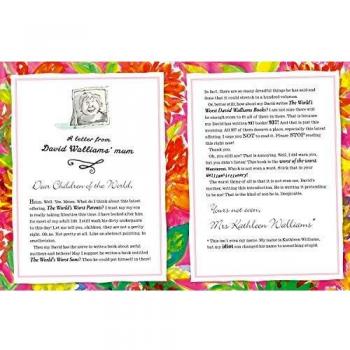 A letter from
David Walliams' mum
Dear Children of the World,
Hmm. Well. Yes. Hmmm. What do I think about this latest
offering, The World's Worst Parents? I must say my son
is really taking liberties this time. I have looked after him
for most of my adult life. I still wash his dirty underpants
to this day. Let me tell you, children, they are not a pretty
sight. Oh no. Not pretty at all. Like an abstract painting. In
smellovision.
Then my David has the nerve to write a book about awful
mothers and fathers! May I suggest he write a book entitled
The World's Worst Sons? Then he could put himself in there!
In fact, there are so many dreadful things he has said and
done that it could stretch to a hundred volumes.
Or, better still, how about my David write The World's
Worst David Walliams Books? I am not sure there will
be enough room to fit all of them in there. That is because
my David has written NO books! NO! And that is just this
morning. All of them deserve a place, especially this latest
offering. I urge you NOT to read it. Please STOP reading
this right now!
Thank you.
Oh, you still are? That is annoying. Well, I did warn you,
but you didn't listen! This book is the worst of the worst
Worstests. Who is not even a word. Stick that in your
The worst thing of all is that it is not even me, David's
mother, writing this introduction. He is writing it pretending
to be me! That is the kind of no-good he is. Despicable!
Yours not even,
Mrs Kathleen Walliams*
* This isn't even my name. My name is Kathleen Williams,
but my idiot son changed his name to something stupid.